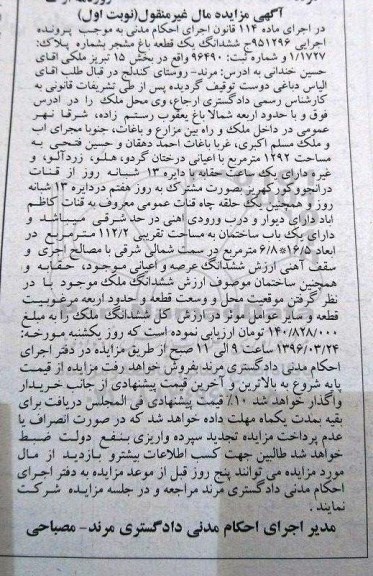 آگهی مزایده مال غیرمنقول(نوبت اول)
در اجرای ماده ۱۱۴ قانون اجرای احکام مدنی به موجب پرونده
اجرایی ۹۵۱۲۹۶ج ششدانگ یک قطعه باغ مشجر بشماره پلاک:
۱/۱۷۲۷ و شماره ثبت: ۹۶۴۹۰ واقع در بخش ۱۵ تبریز ملکی آقای
حسین خندانی به ادرس: مرند- روستای کندلج در قبال طلب آقای
الیاس دباغی دوست توقیف گردیده پس از طی تشریفات قانونی به
کارشناس رسمی دادگستری ارجاع، وی محل ملک را در ادرس
فوق و با حدود اربعه شمالا باغ یعقوب رستم زاده، شرقا نهر
عمومی در داخل ملک و راه بین مزارع و باغات، جنوبا مجرای اب
و ملک مسلم اکبری، غربا باغات احمد دهقان و حسین فتحی به
مساحت ۱۲۹۲ مترمربع با اعیانی درختان گردو، هلو، زردآلو، و
غیره دارای یک ساعت حقابه با دایره ۱۳ شبانه روز از قنات
درانجووکور کهریز بصورت مشترک به روز هفتم دردایره ۱۳ شبانه
روز و همچنین یک حلقه چاه قنات عمومی معروف به قنات کاظم
اباد دارای دیوار و درب ورودی اهنی در حد شرقی میباشد و
دارای یک باب ساختمان به مساحت تقریبی ۱۱۲/۲ مترمربع در
ابعاد ۱۶/۵*۶/۸ مترمربع در سمت شمالی شرقی با مصالح اجری و
سقف آهنی ارزش ششدانگ عرصه و اعیانی موجود، حقابه و
همچنین ساختمان موصوف ارزش ششدانگ ملک موجود با در
نظر گرفتن موقعیت محل و وسعت قطعه و حدود اربعه مرغوبیت
قطعه و سایر عوامل موثر در ارزش کل ششدانگ ملک را به مبلغ
۱۴۰/۸۲۸/۰۰۰ تومان ارزیابی نموده است که روز یکشنبه مورخه:
۱۳۹۶/۰۳/۲۴ ساعت ۹ الی ۱۱ صبح از طریق مزایده در دفتر اجرای
احکام مدنی دادگستری مرند بفروش خواهد رفت مزایده از قیمت
پایه شروع به بالاترین و آخرین قیمت پیشنهادی از جانب خریدار
واگذار خواهد شد ۱۰٪ قیمت پیشنهادی فی المجلس دریافت برای
بقیه بمدت یکماه مهلت داده خواهد شد که در صورت انصراف یا
عدم پرداخت مزایده تجدید سپرده واریزی بنفع دولت ضبط
خواهد شد طالبین جهت کسب اطلاعات بیشترو بازدید از مال
مورد مزایده می توانند پنج روز قبل از موعد مزایده به دفتر اجرای
احکام مدنی دادگستری مرند مراجعه و در جلسه مزایده شرکت
نمایند.
مدیر اجرای احکام مدنی دادگستری مرند- مصباحی